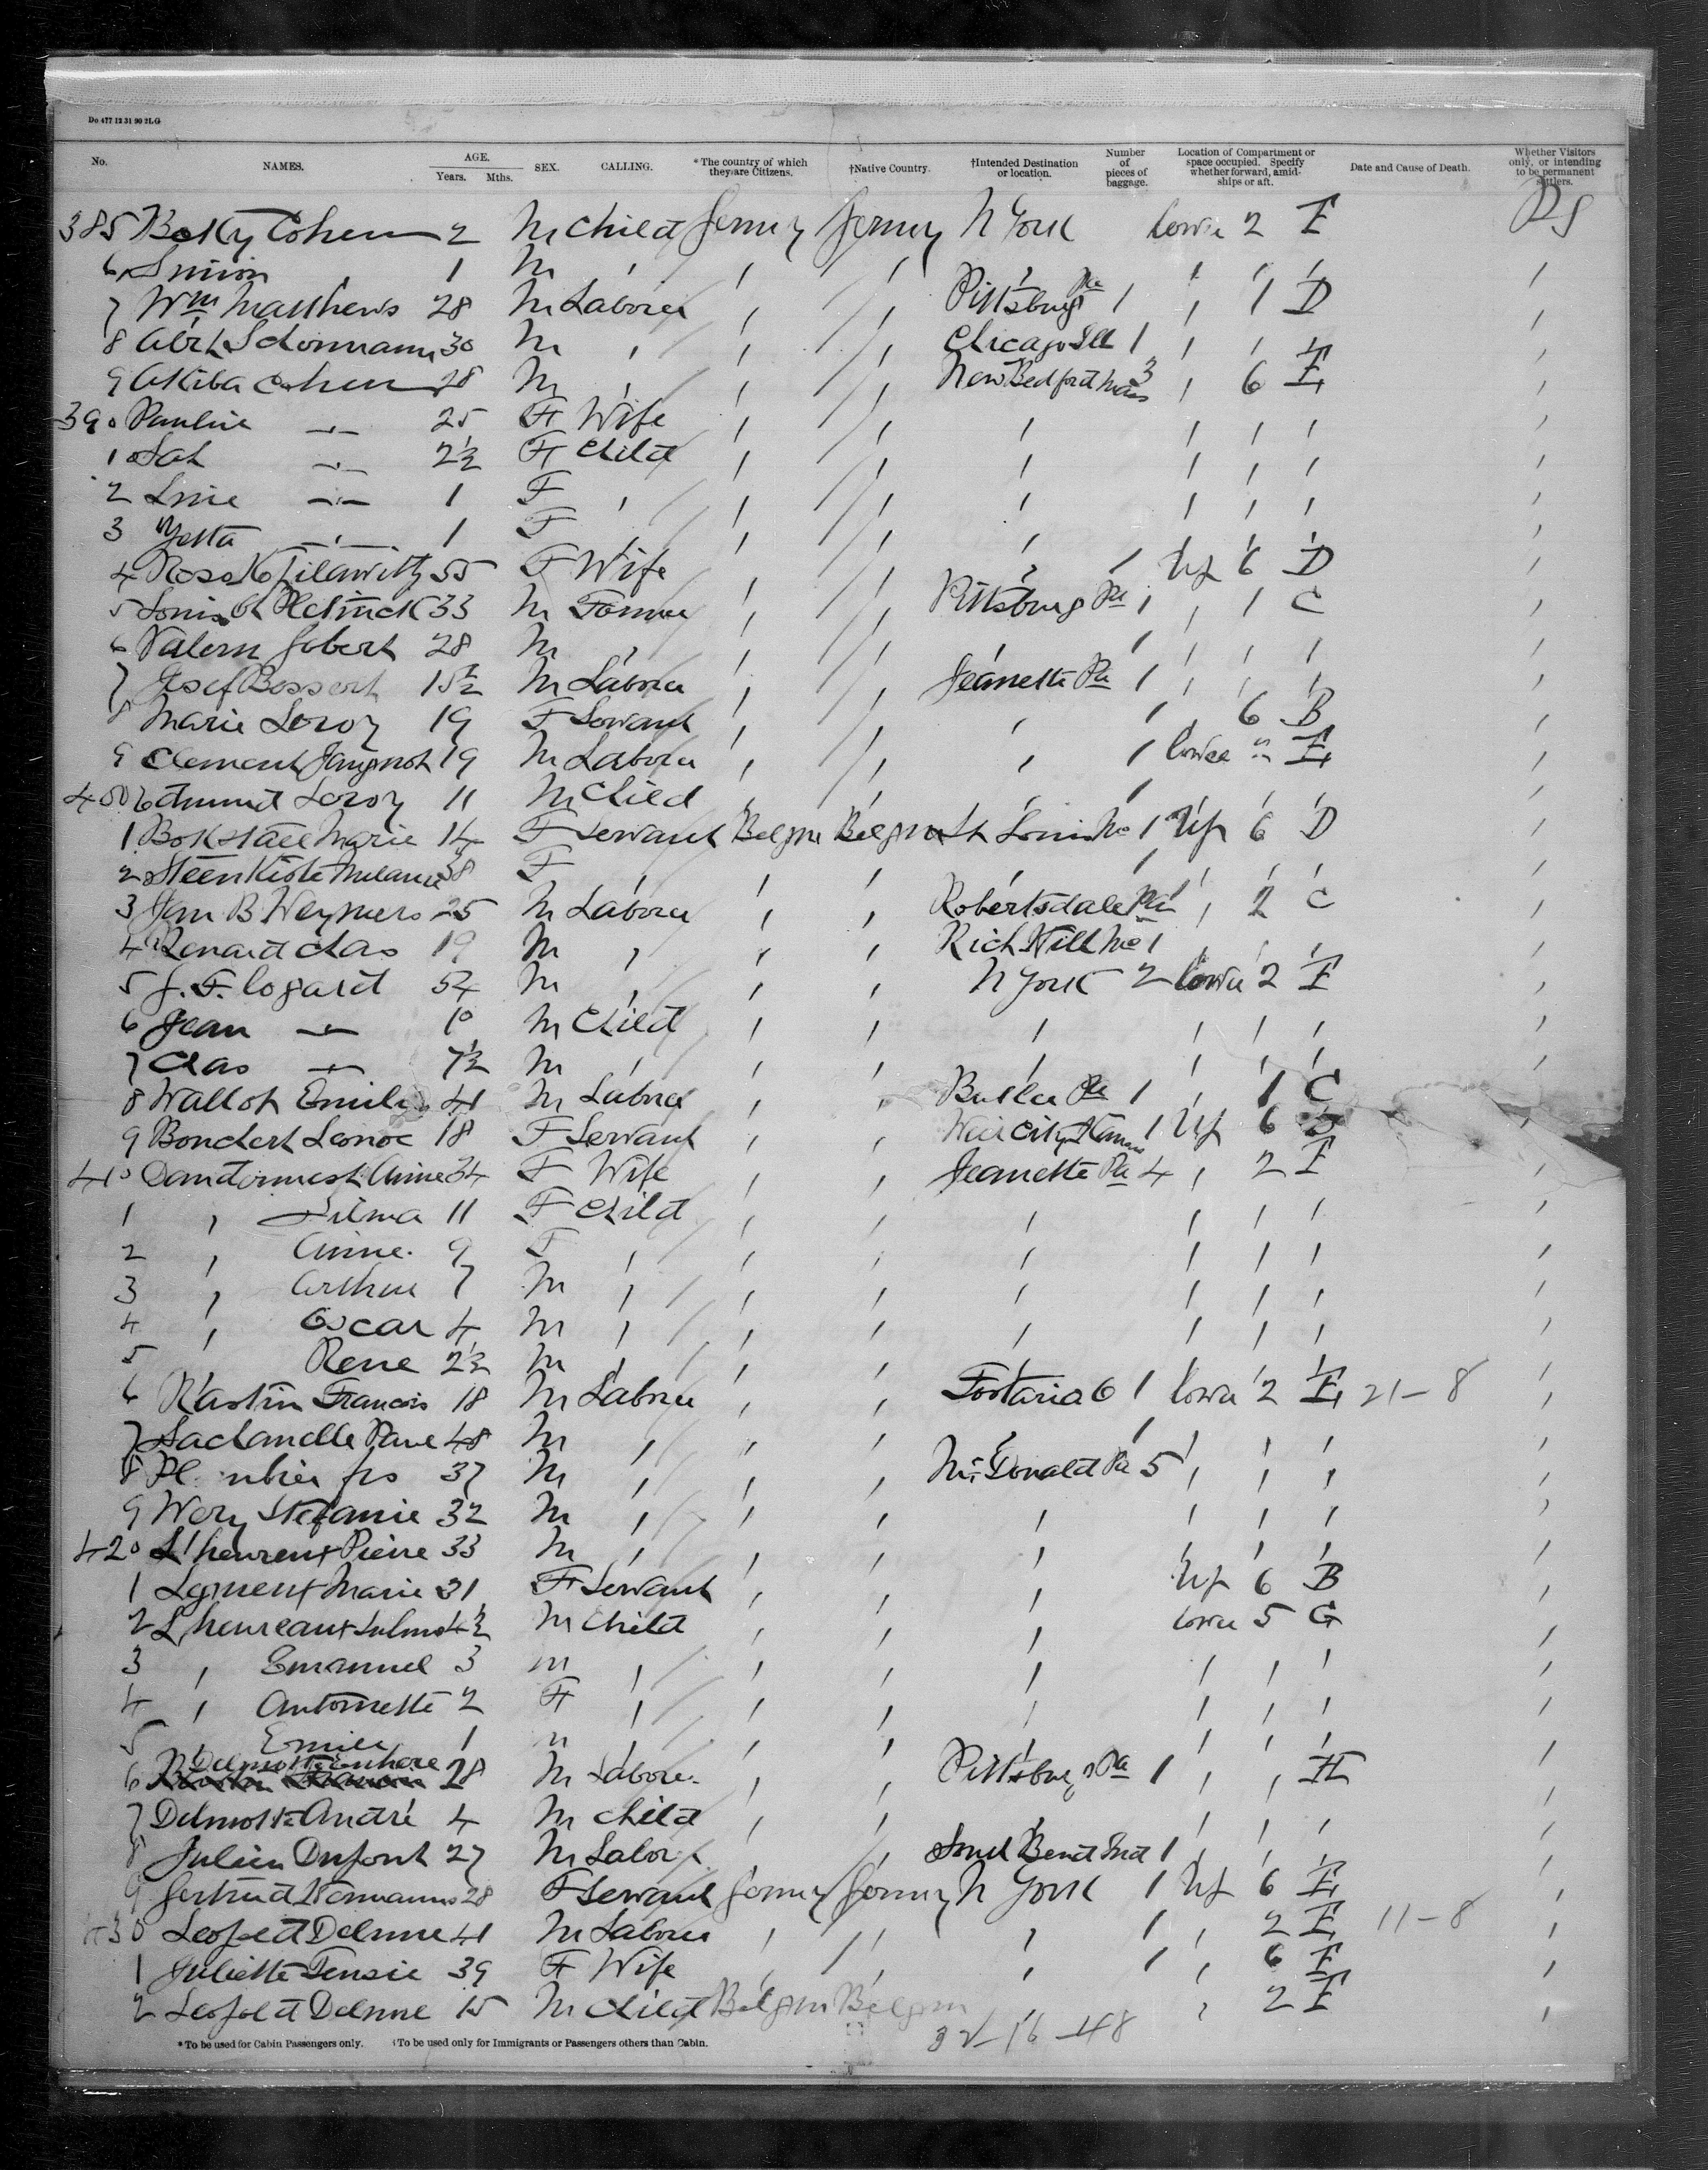 Do 477 12 31 90 2LG
No. NAMES. AGE. Years. Mths. SEX. CALLING. *The country of which they are Citizens. †Native Country. †Intended Destination or location. Number of pieces of baggage. Location of Compartment or space occupied. Specify whether forward, amidships or aft. Date and Cause of Death. Whether Visitors only, or intending to be permanent settlers.
385 Betty Cohen 2 M Child Germy Germy N York Lower 2 E PS
6 Simion , 1 M , / , / , , , , , ,
7 Wm Matthews 28 M Laborer , / , Pittsburg Pa 1 , 1 D ,
8 Abrh Schonmann 30 M , , / , Chicago Ill 1 , , , ,
9 Akiba Cohen 28 M , , / , New Bedford Mass 3 , 6 E ,
390 Pauline —〃— 25 F Wife , / , , , , , ,
1 Sah —〃— 2½ F Child , / , , , , , ,
2 Line —〃— 1 F , , / , , , , , ,
3 Yetta —〃— 1 F , , / , , , , , ,
4 Rosa 55 F Wife , / , , 1 Up 6 D ,
5 Louis 33 M Farmer , / , Pittsburg Pa 1 , 1 C ,
6 Valern Gobert 28 M , , / , , 1 , , , ,
7 Josef Bossert 15½ M Laborer , / , Jeanette Pa 1 , , , ,
8 Marie Leroy 19 F Servant , / , , 1 6 B ,
9 Clement 19 M Laborer , / , , 1 Lower 〃 E ,
400 Leroy 11 M Child , , , 1 , , , ,
1 Bokstael Marie 14 F Servant Belgm Belgm St Louis Mo 1 Up 6 D ,
2 Steenkiste Melanie 38 F , , , , 1 , , , ,
3 Jan B Weymers 25 M Laborer , , Robertsdale Pa 1 , 2 C ,
4 Renard Chas 19 M , , , Rich Hill Mo 1 , , , ,
5 J. F. Cogard 54 M , , , N York 2 Lower 2 E ,
6 Jean —〃— 10 M Child , , , , , , ,
7 Chas —〃— 7½ M , , , , , , , ,
8 Wallot Emile 41 M Laborer , , Butler Pa 1 , 1 C
9 Leonoe 18 F Servant , , Weir City Kansas 1 Up 6 ,
410 Anine 34 F Wife , , Jeanette Pa 4 , 2 E ,
1 , Silma 11 F Child , , , , , , ,
2 , Anine 9 F , , , , , , , ,
3 , Arthur 7 M , , , , , , , ,
4 , Oscar 4 M , , , , , , , ,
5 Rene 2½ M , , , , , , , ,
6 Francois 18 M Laborer , , Fostoria O 1 Lower 2 E 21-8 ,
7 48 M , , , , 1 , , , ,
8 frs 37 M , , , McDonald Pa 5 , , , ,
9 Wery Stefanie 32 M , , , , , , , ,
420 L'heureux Pierre 33 M , , , , , , , ,
1 Marie 31 F Servant , , , Up 6 B ,
2 L'heureaux 4½ M Child , , , Lower 5 G ,
3 , Emanuel 3 M , , , , , , , ,
4 , Antoinette 2 F , , , , , , , ,
5 , Emile 1 M , , , , , , , ,
6 Delmotte 28 M Laborer , , Pittsburg Pa 1 , , H ,
7 Delmotte André 4 M Child , , , , , , ,
8 Julien Dupont 27 M Labor , , South Bend Ind 1 , , , ,
9 Gertrud Hermanns 28 F Servant Germy Germy N York 1 Up 6 E ,
430 Leopold Delnne 41 M Laborer , / , , 1 , 2 E 11-8 ,
1 Juliette Tensie 39 F Wife , , , 1 , 6 E ,
2 Leopold Delnne 15 M Child Belgm Belgm , , 2 E ,
32-16-48
*To be used for Cabin Passengers only. †To be used only for Immigrants or Passengers others than Cabin.